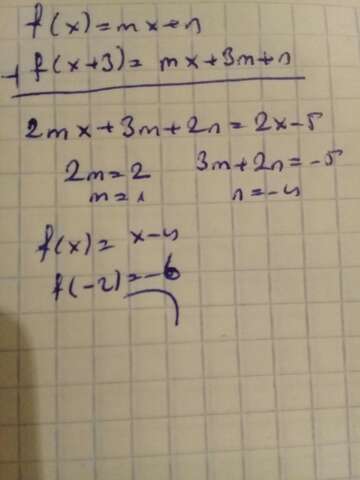 f(x) = mx + n
+ f(x+3) = mx + 3m + n
2mx + 3m + 2n = 2x - 5
2m = 2 3m + 2n = -5
m = 1 n = -4
f(x) = x - 4
f(-2) = -6